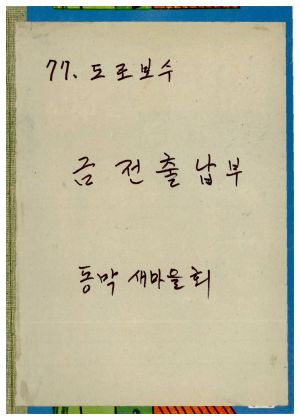 77. 도로보수
금전출납부
동막 새마을회